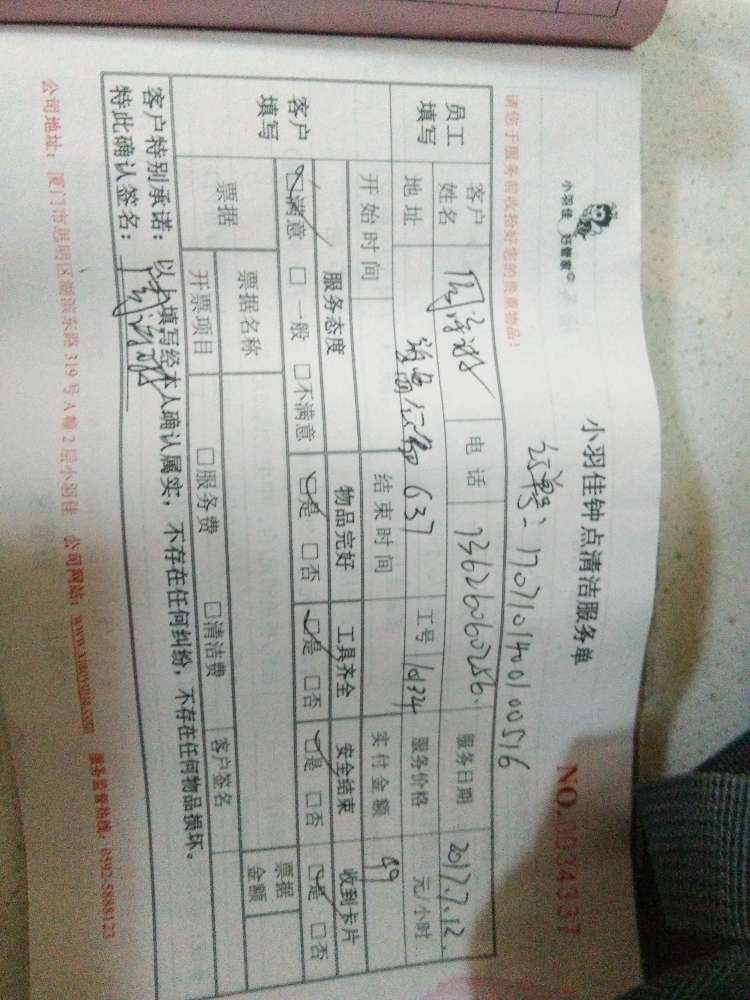 小羽佳 好管家
小羽佳钟点清洁服务单
NO.0034337
请您于服务前收拾好您的贵重物品！
订单号：170710140010051​6
员工填写 客户姓名 电话 13626060256. 服务日期 2017.7.12.
地址 637 工号 1d324 服务价格 元/小时
开始时间 结束时间 实付金额 49
客户填写 服务态度 物品完好 工具齐全 安全结束 收到卡片
☑满意 □一般 □不满意 ☑是 □否 ☑是 □否 ☑是 □否 ☑是 □否
票据 票据名称 票据金额
开票项目 □服务费 □清洁费 客户签名
客户特别承诺：以上填写经本人确认属实，不存在任何纠纷，不存在任何物品损坏。
特此确认签名：
公司地址：厦门市思明区湖滨东路319号A幢2层小羽佳 公司网站：www.xiaoyujia.com 服务监督热线：0592-5888123